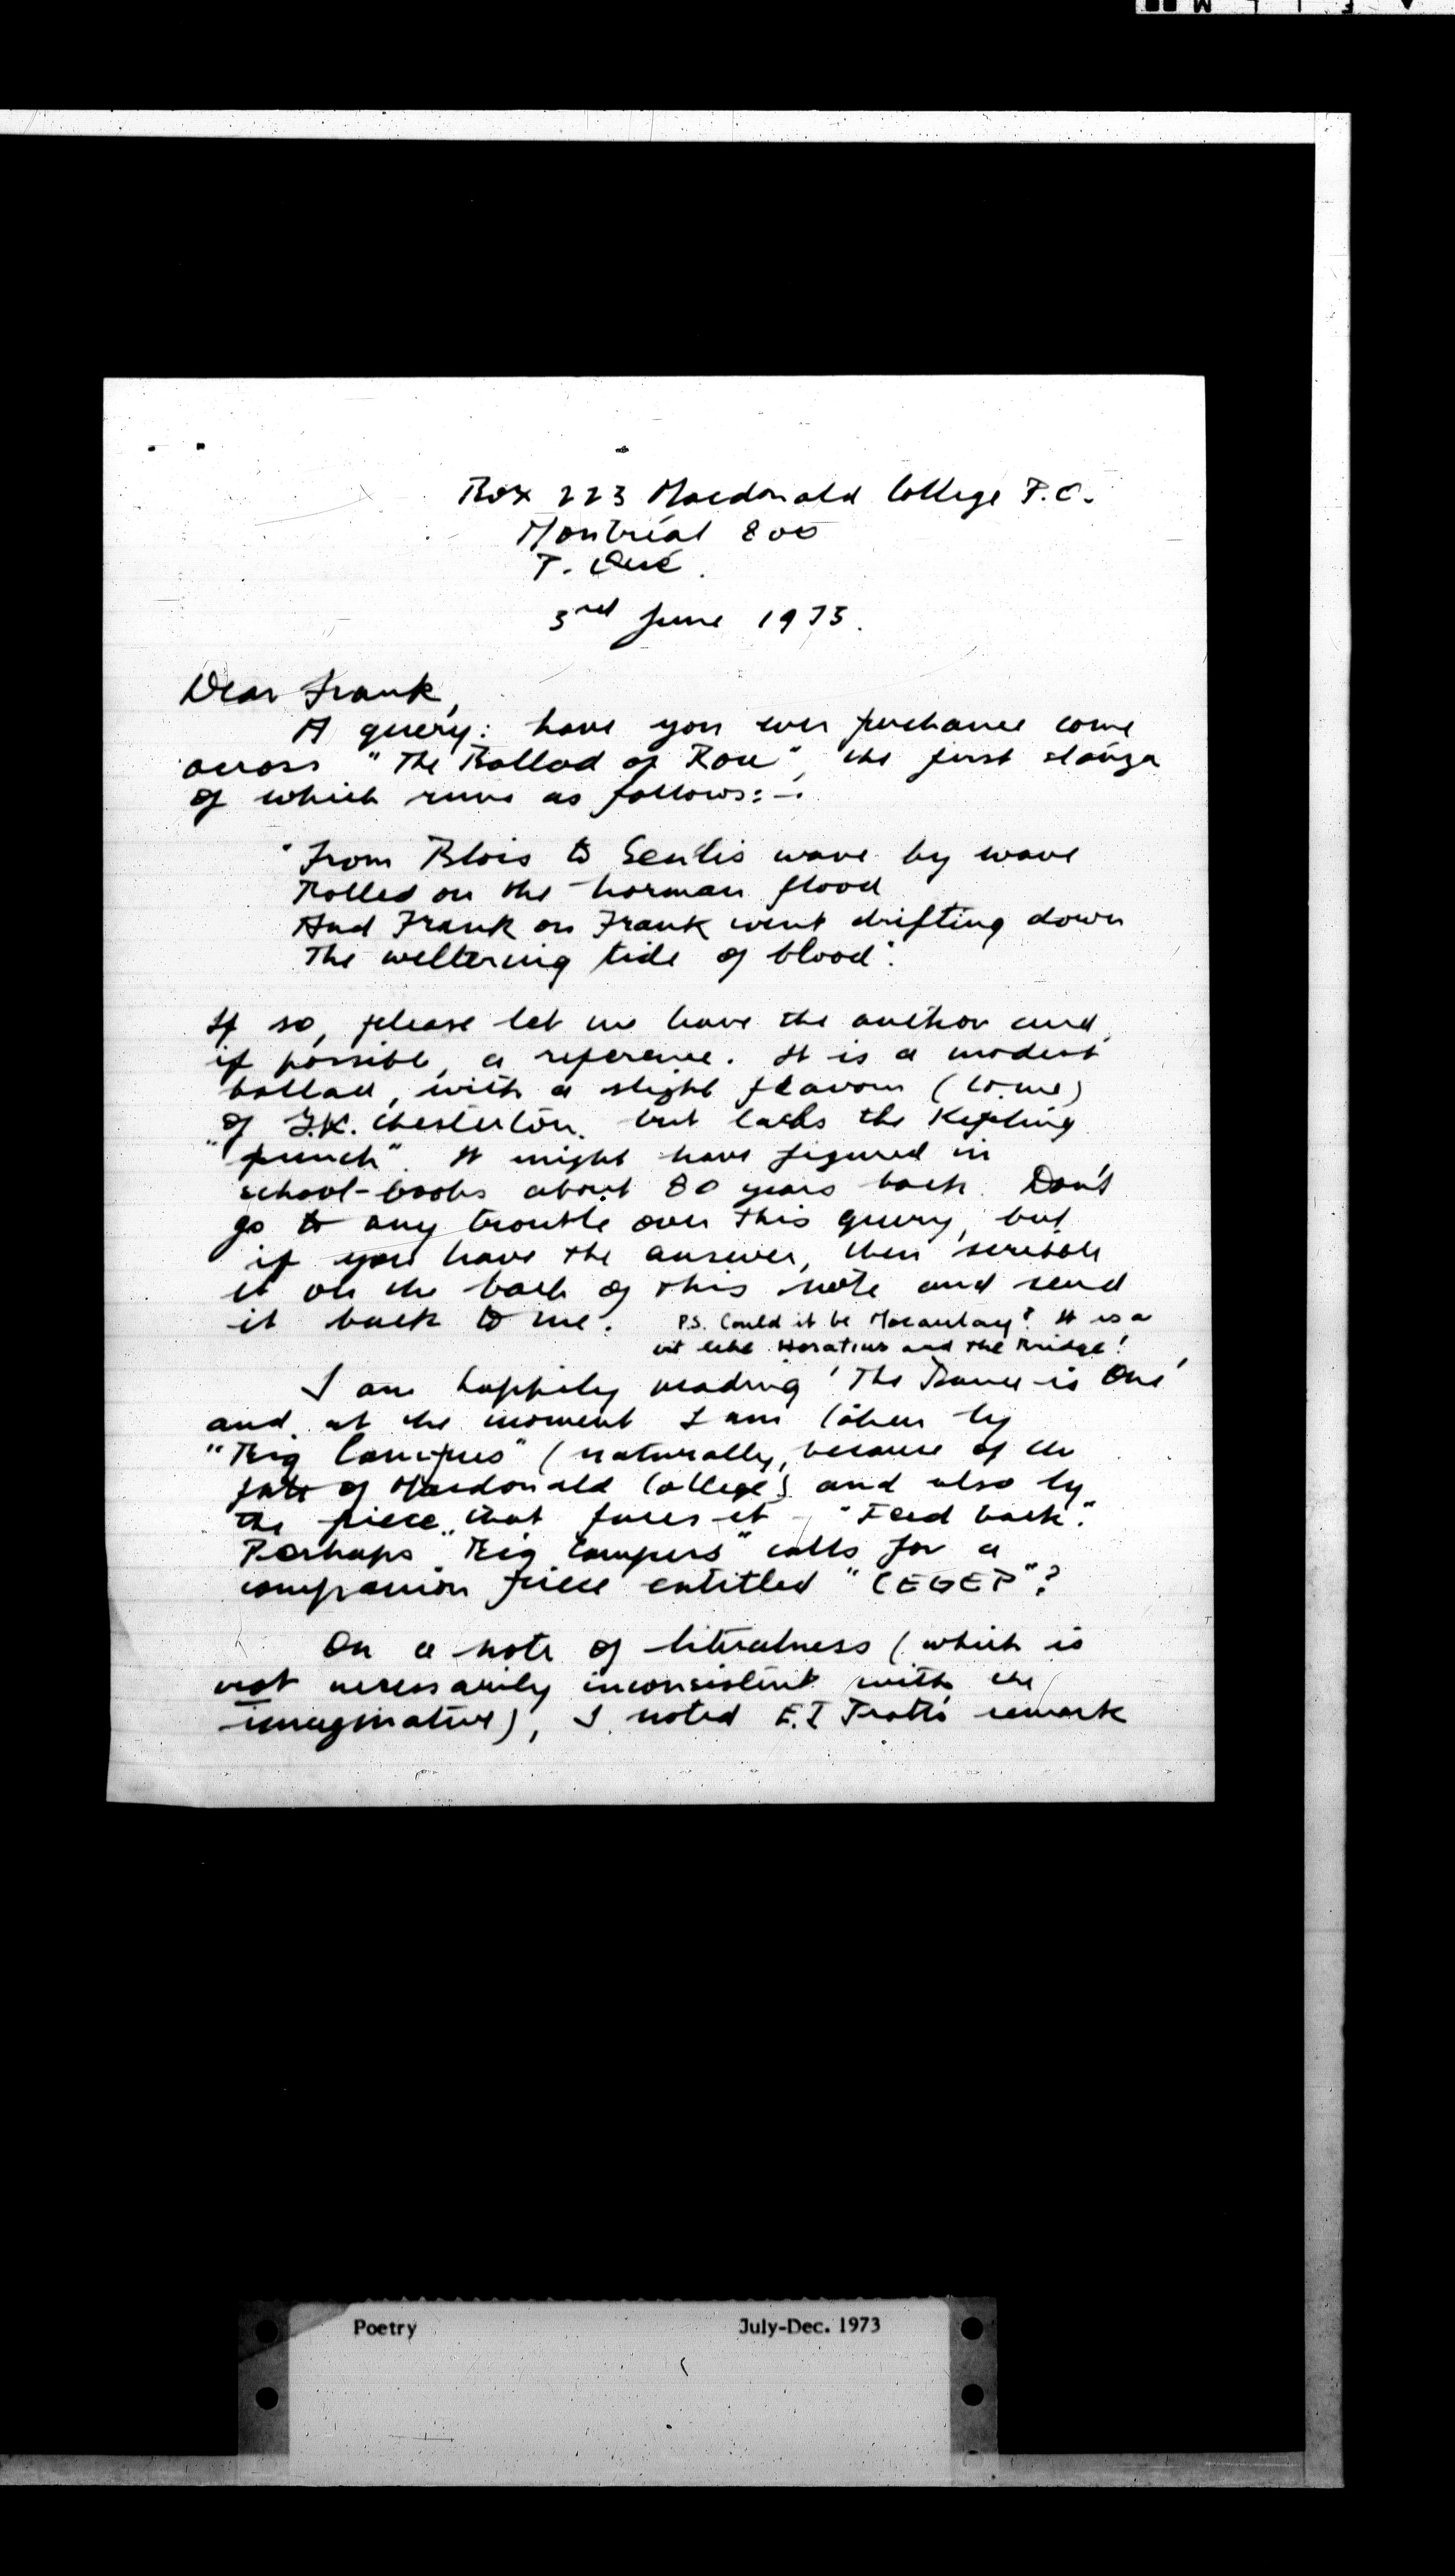 Box 223 Macdonald College P.O.
Montréal 800
P. Qué.
3rd June 1973.
Dear Frank,
A query: have you ever perchance come
across "The Ballad of Rou", the first stanza
of which runs as follows:-
"From Blois to Senlis wave by wave
Rolled on the Norman flood
And Frank on Frank went drifting down
The weltering tide of blood".
If so, please let me have the author and,
if possible, a reference. It is a modest
ballad, with a slight flavour (to me)
of G.K. Chesterton, but lacks the Kipling
"punch". It might have figured in
school-books about 80 years back. Don't
go to any trouble over this query, but
if you have the answer, then scribble
it on the back of this note and send
it back to me.
P.S. Could it be Macaulay? It is a
bit like Horatius and the Bridge!
I am happily reading 'The Dance is One'
and at the moment I am taken by
"Big Campus" (naturally, because of the
fate of Macdonald College) and also by
the piece that faces it - "Feed back".
Perhaps "Big Campus" calls for a
companion piece entitled "CEGEP"?
On a note of literalness (which is
not necessarily inconsistent with the
imaginative), I noted E.J Pratt's remark
Poetry
July-Dec. 1973